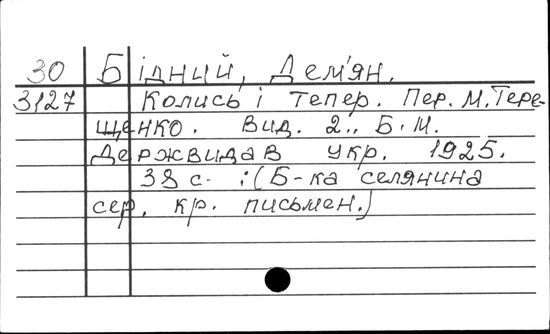 30 Бідний, Дем'ян.
3127 Колись і тепер. Пер. М. Тере-
щенко. Вид. 2.. Б. М.
Держвидав Укр. 1925.
38 с. :(Б-ка селянина
сер. кр. письмен.)